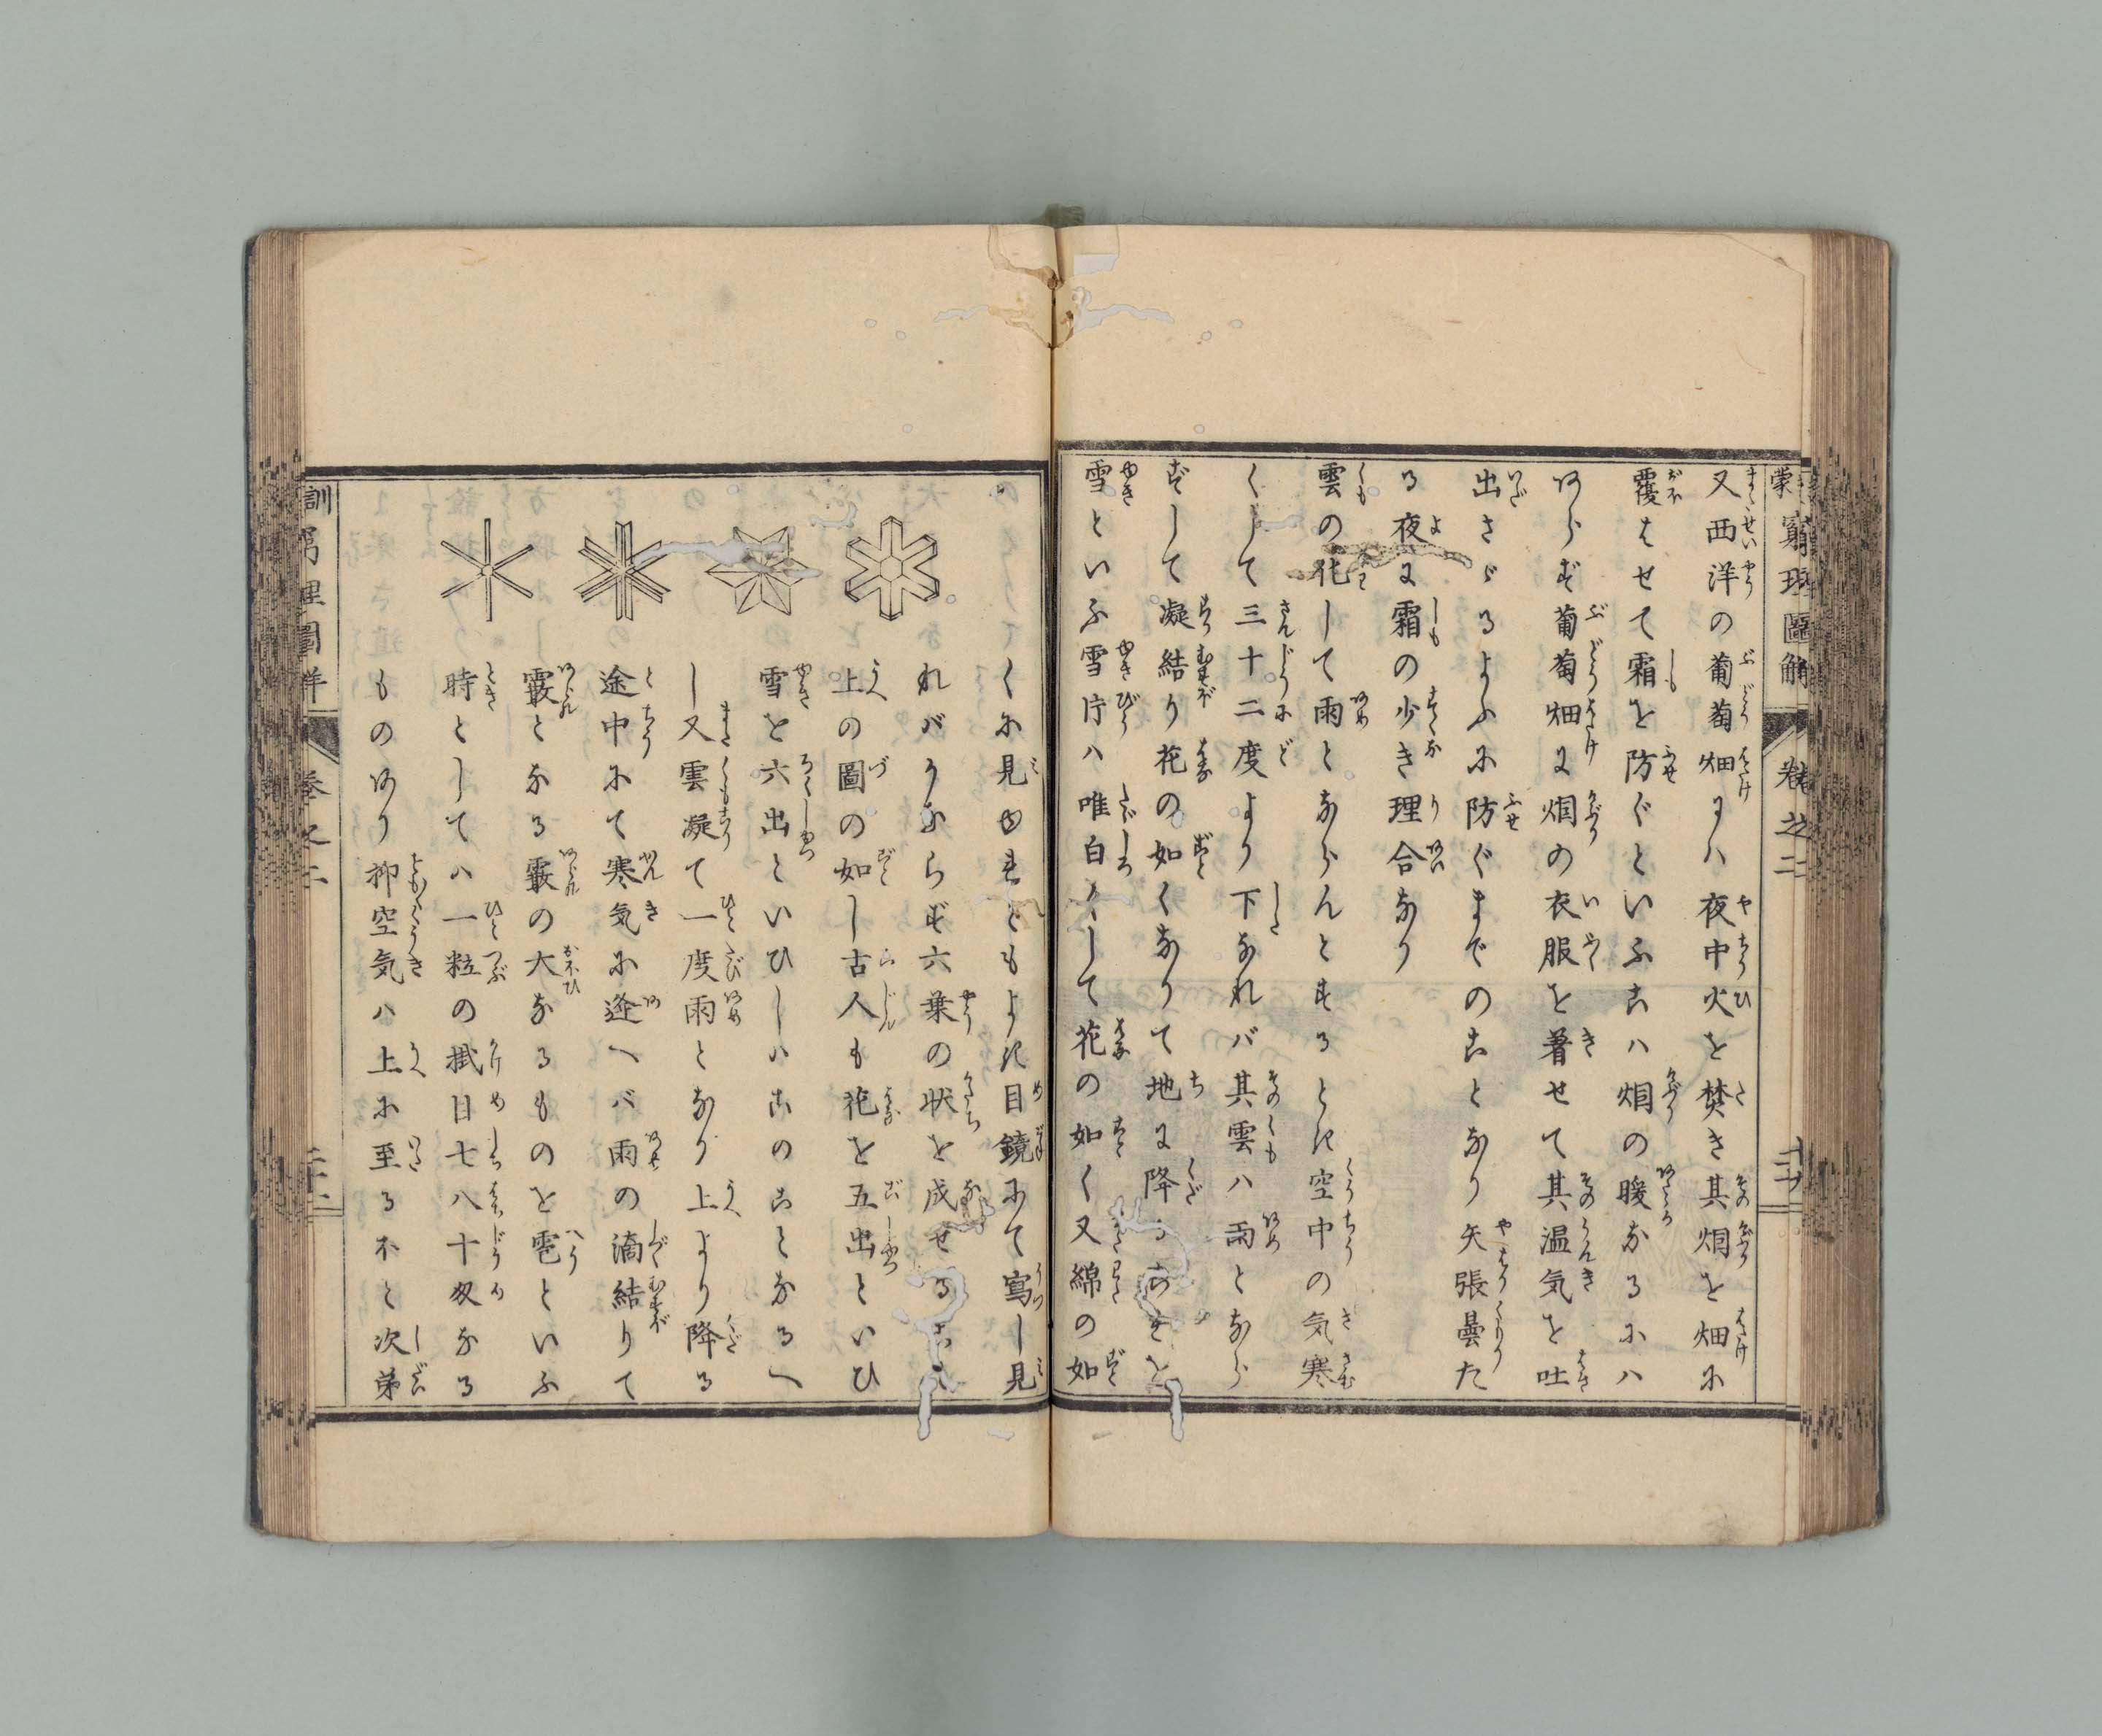 又西洋の葡萄畑にハ夜中火を焚き其烟を畑に
覆はせて霜を防ぐといふこハ烟の暖なるにハ
あらず葡萄畑に烟の衣服を着せて其温気を吐
出さゞるように防ぐまでのことなり矢張曇た
る夜に霜の少き理合なり
雲の化して雨とならんとするとき空中の気寒
くして三十二度より下なれバ其雲ハ雨となら
ずして凝結り花の如くなりて地に降るものを
雪といふ雪片ハ唯白くして花の如く又綿の如
くに見ゆれどもよき目鏡にて寫し見
れバかならず六葉の状を成せること
上の圖の如し古人も花を五出といひ
雪を六出といひしハこのことなるべ
し又雲凝て一度雨となり上より降る
途中にて寒気に逢へバ雨の滴結りて
霰となる霰の大なるものを雹といふ
時としてハ一粒の掛目七八十匁なる
ものあり抑空気ハ上に至るほど次第
蒙窮理圖解 巻之二
訓窮理圖解 巻之二